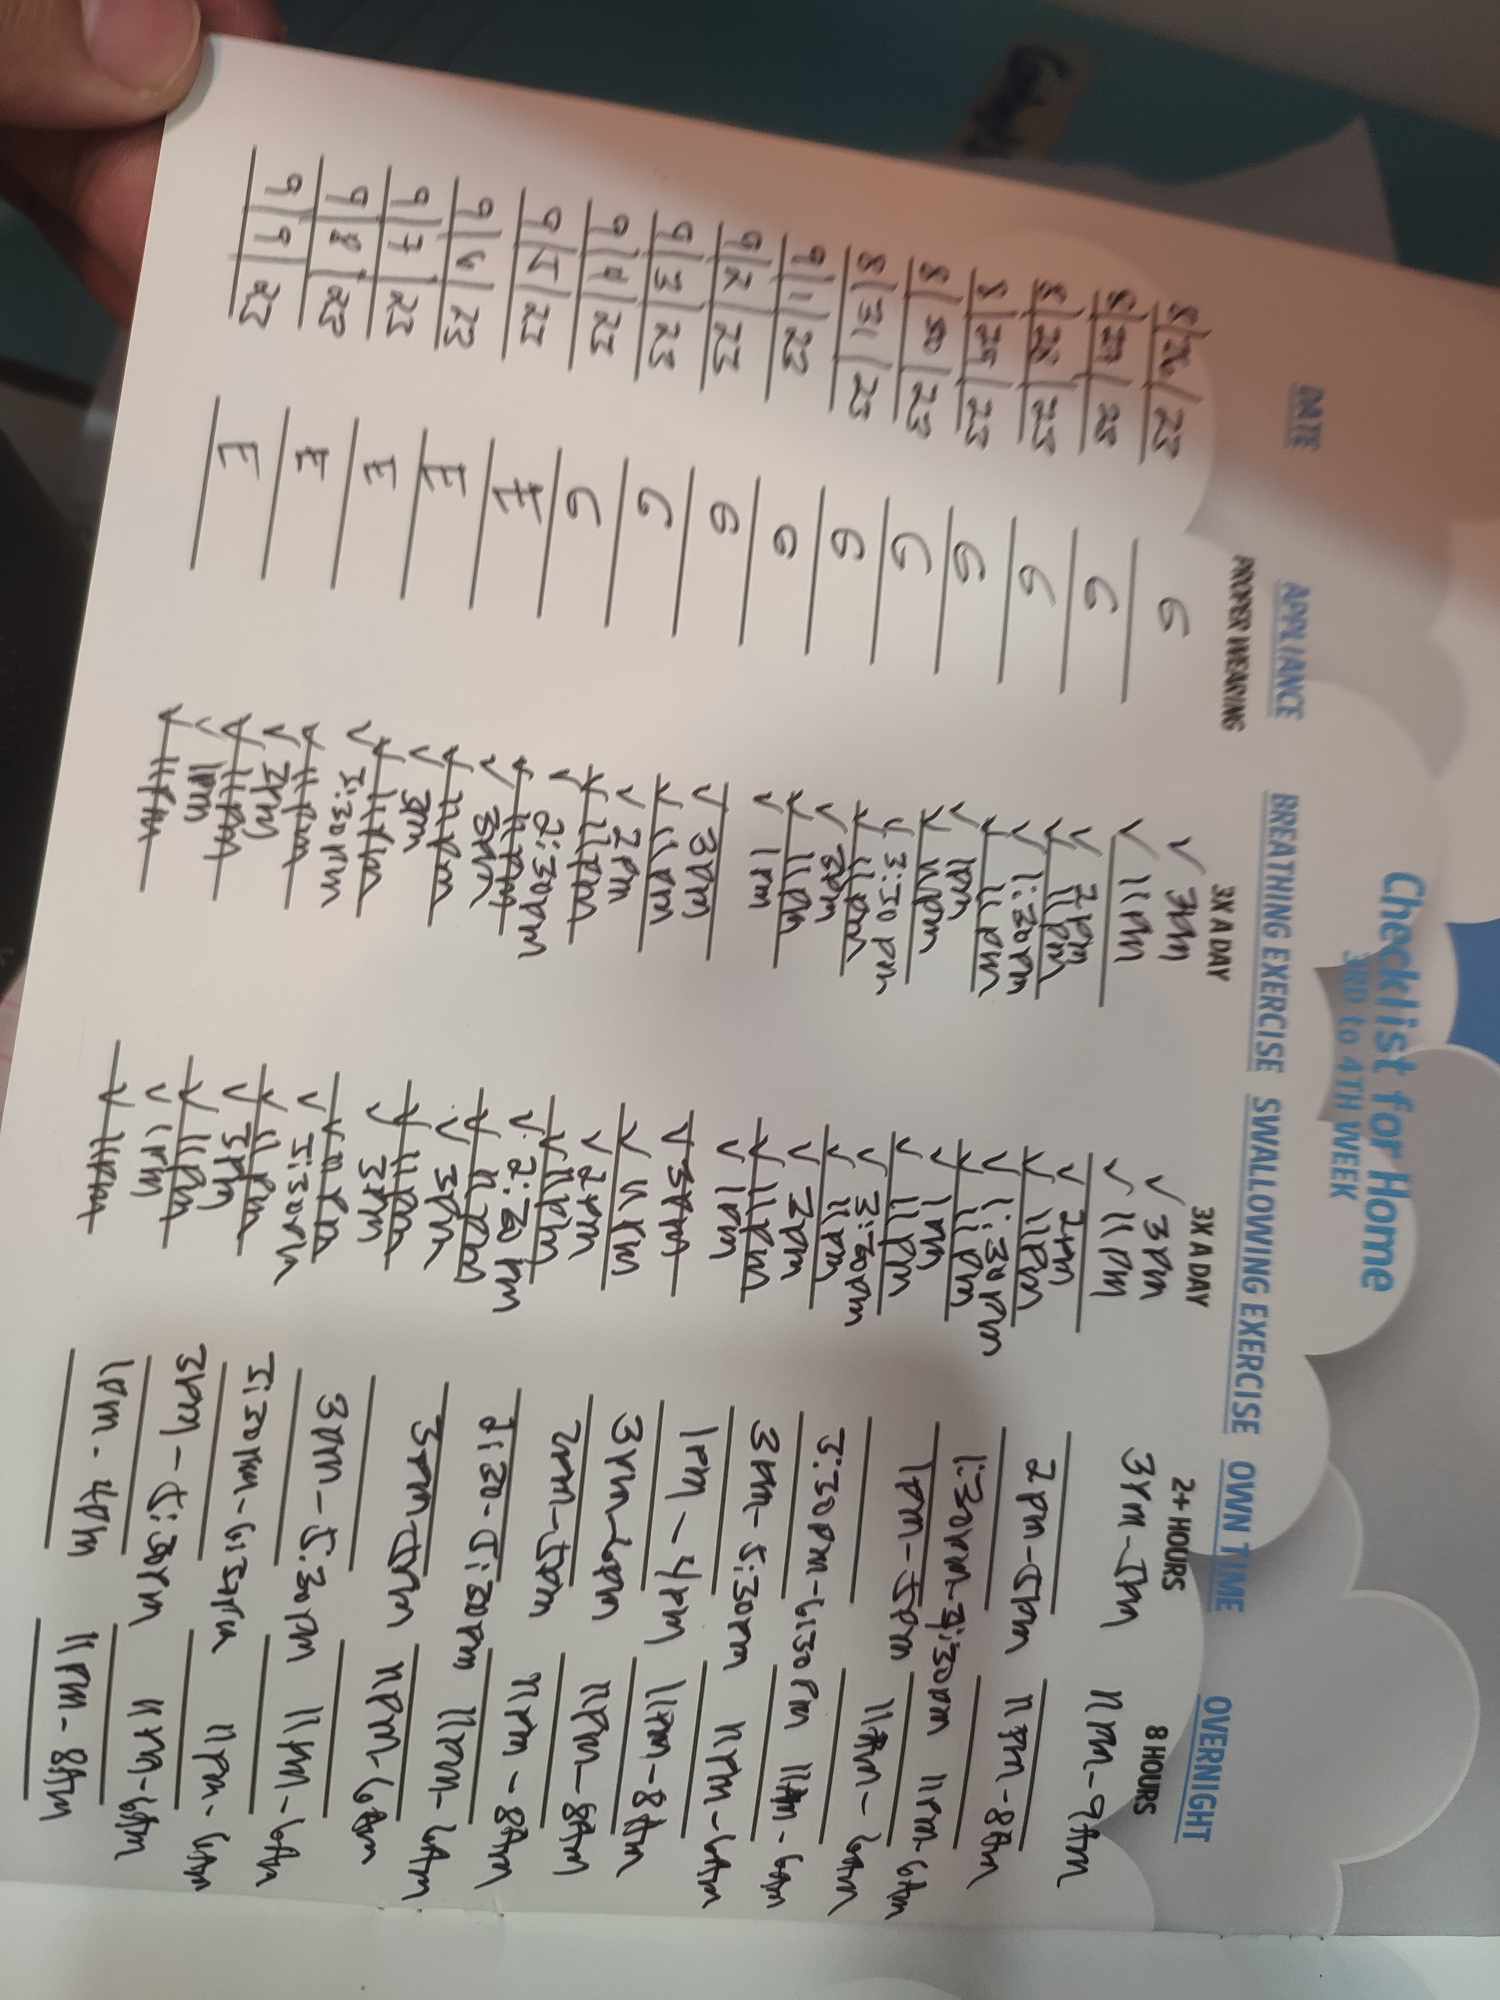 Checklist for Home
3RD to 4TH WEEK
DATE APPLIANCE BREATHING EXERCISE SWALLOWING EXERCISE OWN TIME OVERNIGHT
PROPER WEARING 3X A DAY 3X A DAY 2+ HOURS 8 HOURS
8/26/23 G ✓ 3pm ✓ 3pm 3pm-5pm 11pm-9Am
✓ 11pm ✓ 11pm
8/27/23 G ✓ 2pm ✓ 2pm 2pm-5pm 11pm-8Am
✓ 11pm ✓ 11pm
8/28/23 G ✓ 1:30pm ✓ 1:30pm 1:30pm-4:30pm 11pm-6Am
✓ 11pm ✓ 11pm
8/29/23 G ✓ 1pm ✓ 1pm 1pm-5pm 11pm-6Am
✓ 11pm ✓ 11pm
8/30/23 G ✓ 3:30pm ✓ 3:30pm 3:30pm-6:30pm 11pm-6Am
✓ 11pm ✓ 11pm
8/31/23 G ✓ 3pm ✓ 3pm 3pm-5:30pm 11pm-6Am
✓ 11pm ✓ 11pm
9/1/23 G ✓ 1pm ✓ 1pm 1pm-4pm 11pm-8Am
9/2/23 G ✓ 3pm ✓ 3pm 3pm-6pm 11pm-8Am
✓ 11pm ✓ 11pm
9/3/23 G ✓ 2pm ✓ 2pm 2pm-5pm 11pm-8Am
✓ 11pm ✓ 11pm
9/4/23 G ✓ 2:30pm ✓ 2:30pm 2:30-5:30pm 11pm-6Am
✓ 11pm ✓ 11pm
9/5/23 E ✓ 3pm ✓ 3pm 3pm-5pm 11pm-6Am
✓ 11pm ✓ 11pm
9/6/23 E ✓ 3pm ✓ 3pm 3pm-5:30pm 11pm-6Am
✓ 11pm ✓ 11pm
9/7/23 E ✓ 5:30pm ✓ 5:30pm 11pm-6Am
✓ 11pm ✓ 11pm
9/8/23 E ✓ 2pm ✓ 3pm 3pm-5:30pm 11pm-6Am
✓ 11pm ✓ 11pm
9/9/23 E ✓ 1pm ✓ 1pm 1pm-4pm 11pm-8Am
✓ 11pm ✓ 11pm